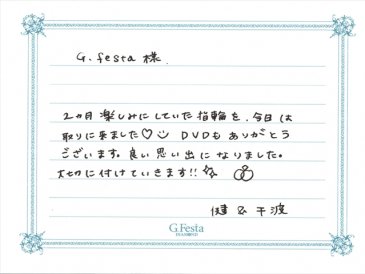 G.festa 様
2ヵ月 楽しみにしていた指輪を、今日は
取りに来ました♡ DVDも ありがとう
ございます。良い思い出になりました。
大切に付けていきます!!
健 & 千波
G.Festa
DIAMOND